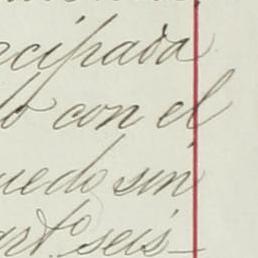 rcipada
lo con el
uedo sin
art.º seis-